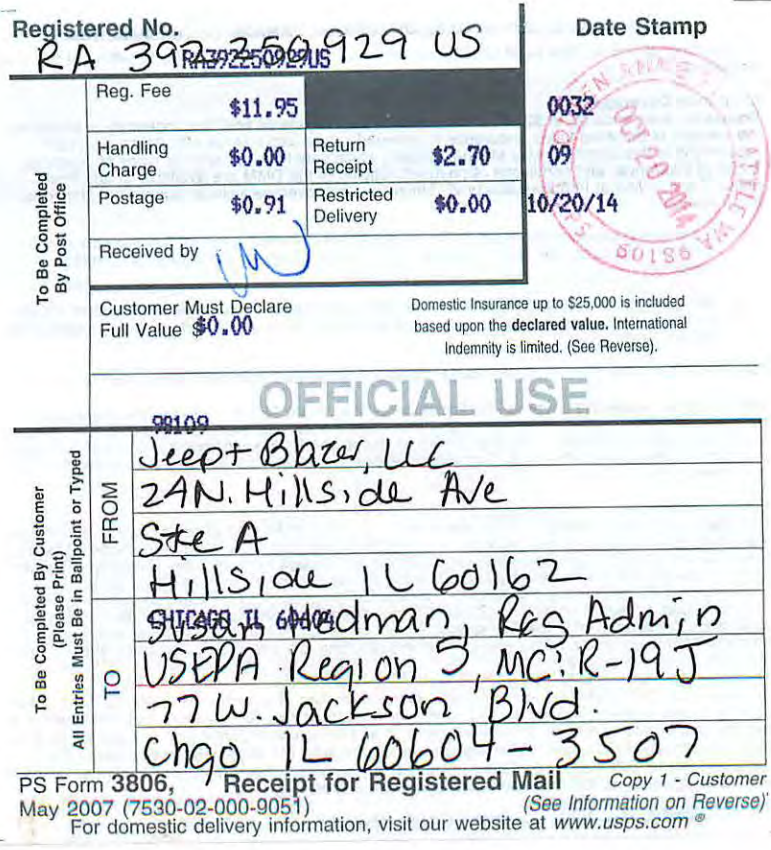 Registered No.
RA 392 250 929 US
RA392250929US
Date Stamp
To Be Completed
By Post Office
Reg. Fee
$11.95
Handling
Charge
$0.00
Return
Receipt
$2.70
Postage
$0.91
Restricted
Delivery
$0.00
Received by
0032
09
10/20/14
OCT 20 2014
SEATTLE WA 98109
Customer Must Declare
Full Value $0.00
Domestic Insurance up to $25,000 is included
based upon the declared value. International
Indemnity is limited. (See Reverse).
OFFICIAL USE
98109
To Be Completed By Customer
(Please Print)
All Entries Must Be in Ballpoint or Typed
FROM
Jeep + Blazer, LLC
24 N. Hillside Ave
Ste A
Hillside IL 60162
TO
CHICAGO IL 60604
Susan Hedman, Reg Admin
USEPA Region 5, MC: R-19J
77 W. Jackson Blvd.
Chgo IL 60604-3507
PS Form 3806, Receipt for Registered Mail Copy 1 - Customer
May 2007 (7530-02-000-9051) (See Information on Reverse)
For domestic delivery information, visit our website at www.usps.com ®